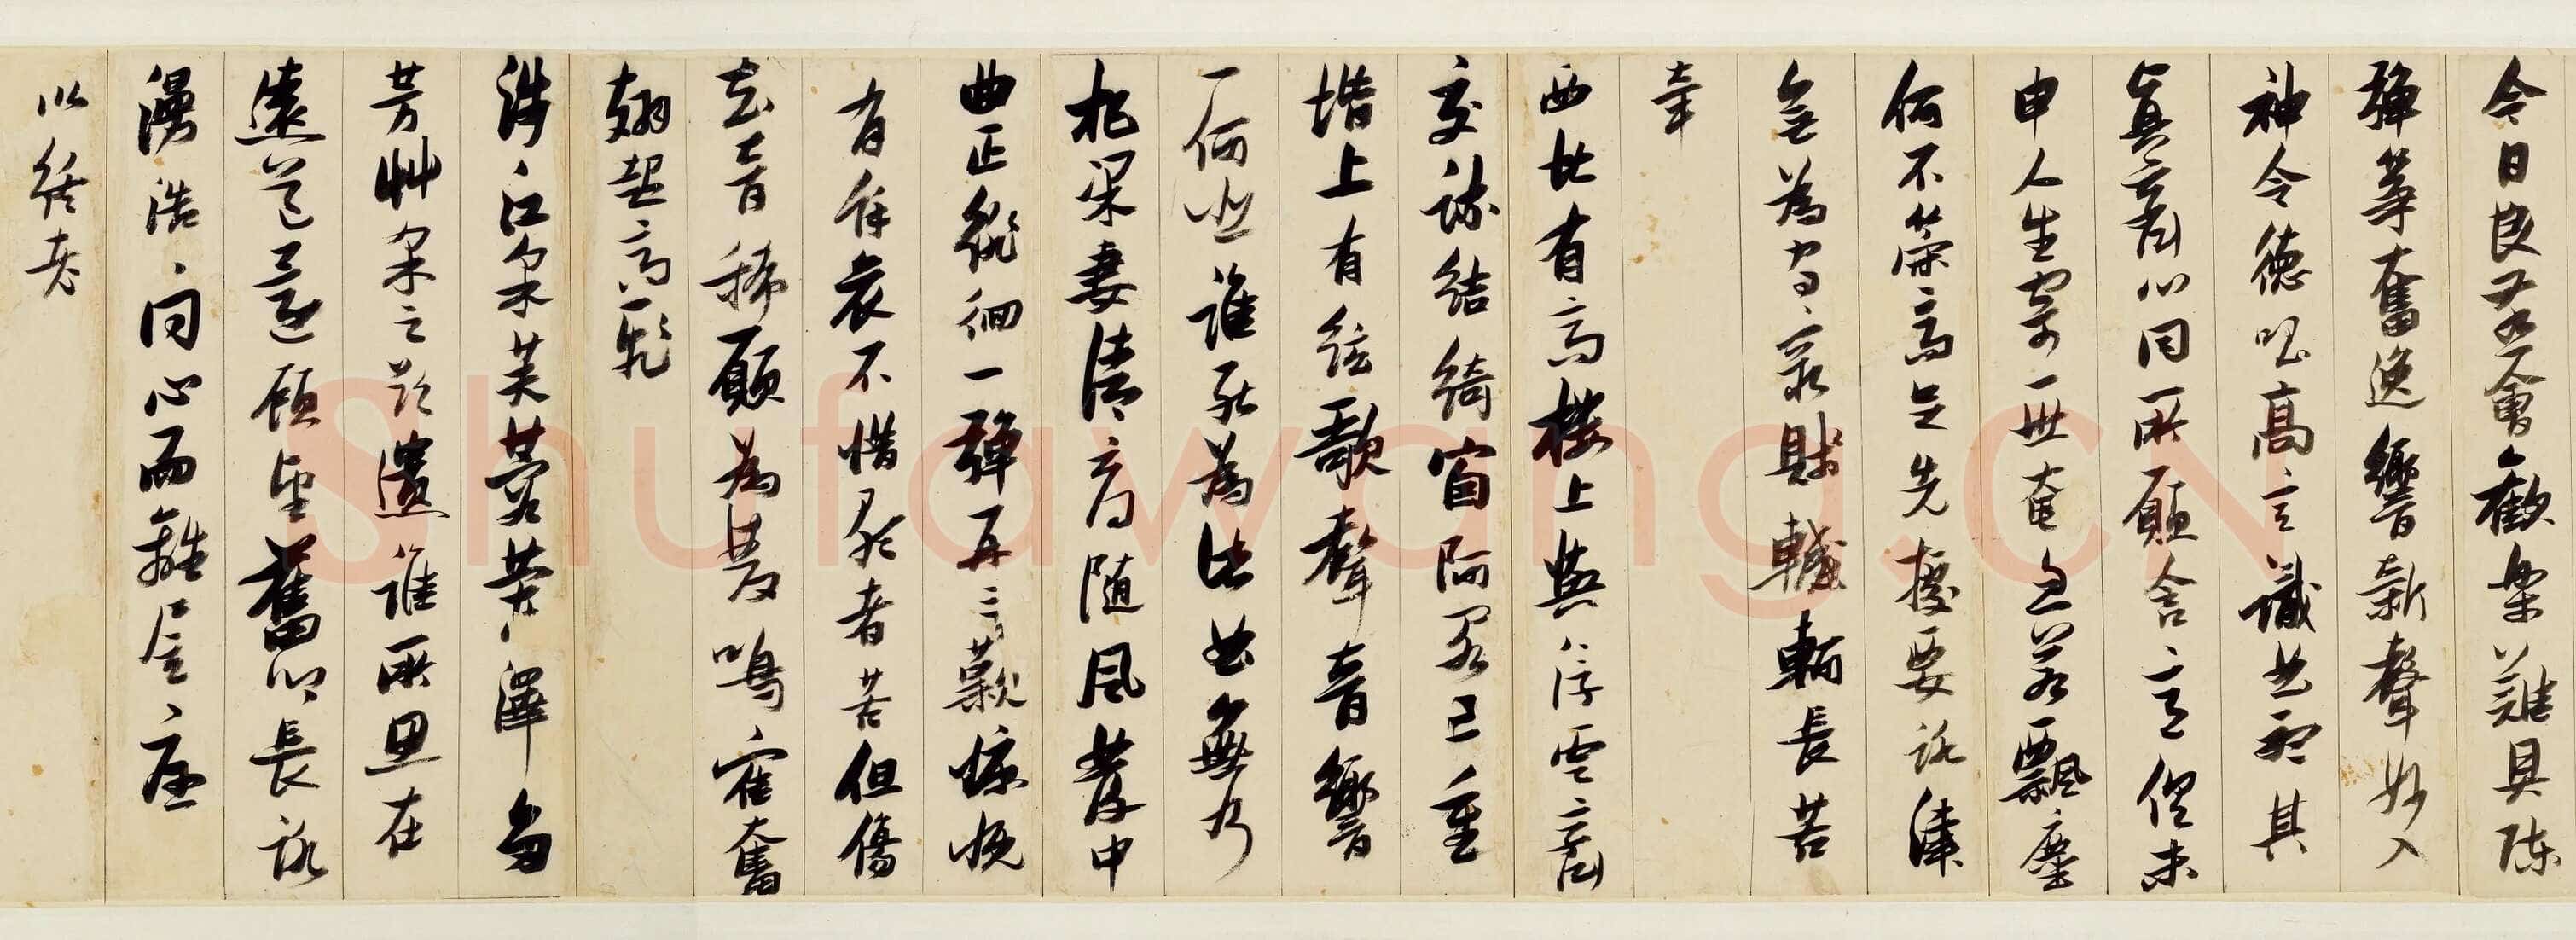 今日良宴會歡樂難具陳
彈箏奮逸響新聲妙入
神令德唱高言識曲聽其
真齊心同所願含意俱未
申人生寄一世奄忽若飄塵
何不策高足先據要路津
無為守窮賤轗軻長苦
辛
西北有高樓上與浮雲齊
交疏結綺窗阿閣三重
階上有絃歌聲音響
一何悲誰能為此曲無乃
杞梁妻清商隨風發中
曲正徘徊一彈再三歎慷慨
有餘哀不惜歌者苦但傷
知音稀願為雙鳴鶴奮
翅起高飛
涉江采芙蓉蘭澤多
芳草采之欲遺誰所思在
遠道還顧望舊鄉長路
漫浩浩同心而離居憂傷
以終老
Shufawang.CN